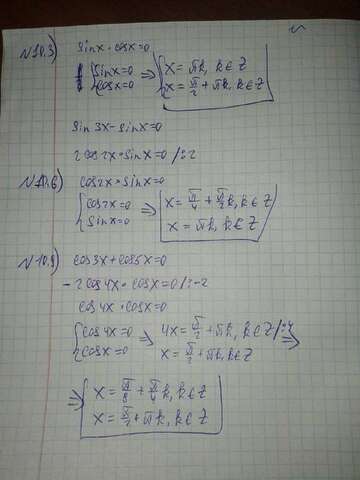 N10.3) sinx · cosx=0
{ sinx=0 => { x = πk, k∈Z
{ cosx=0 { x = π/2 + πk, k∈Z
sin 3x - sinx=0
2cos2x · sinx=0 /:2
N10.6) cos2x · sinx=0
{ cos2x=0 => { x = π/4 + π/2 k, k∈Z
{ sinx=0 { x = πk, k∈Z
N10.9) cos3x+cos5x=0
-2cos4x · cosx=0 /:-2
cos4x · cosx=0
{ cos4x=0 => 4x = π/2 + πk, k∈Z /:4
{ cosx=0 x = π/2 + πk, k∈Z =>
=> { x = π/8 + π/4 k, k∈Z
{ x = π/2 + πk, k∈Z